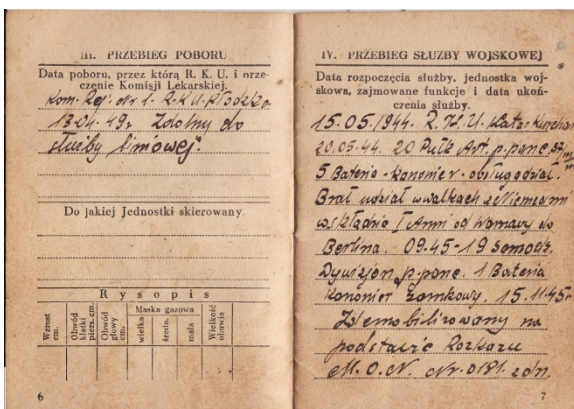 III. PRZEBIEG POBORU
Data poboru, przez którą R. K. U. i orze-
czenie Komisji Lekarskiej.
Kom. Rej. Nr 1. R.K.U. Kłodzko
13.04.49. Zdolny do
służby liniowej.
Do jakiej Jednostki skierowany
Rysopis
Wzrost cm.
Obwód klatki piers. cm.
Obwód głowy cm.
Maska gazowa
wielka
średn.
mała
Wielkość obuwia
6
IV. PRZEBIEG SŁUŻBY WOJSKOWEJ
Data rozpoczęcia służby, jednostka woj-
skowa, zajmowane funkcje i data ukoń-
czenia służby.
15.05.1944. R.K.U.
20.05.44. 20 Pułk Art. p.panc.
5 Bateria - Kanonier - obsługa dział.
Brał udział w walkach z Niemcami
w składzie I Armii od Warszawy do
Berlina. 09.45 - 19 samodz.
Dywizjon p.panc. 1 Bateria
Kanonier zamkowy. 15.11.45
Zdemobilizowany na
podstawie Rozkazu
M.O.N. Nr. 0181. zdn.
7